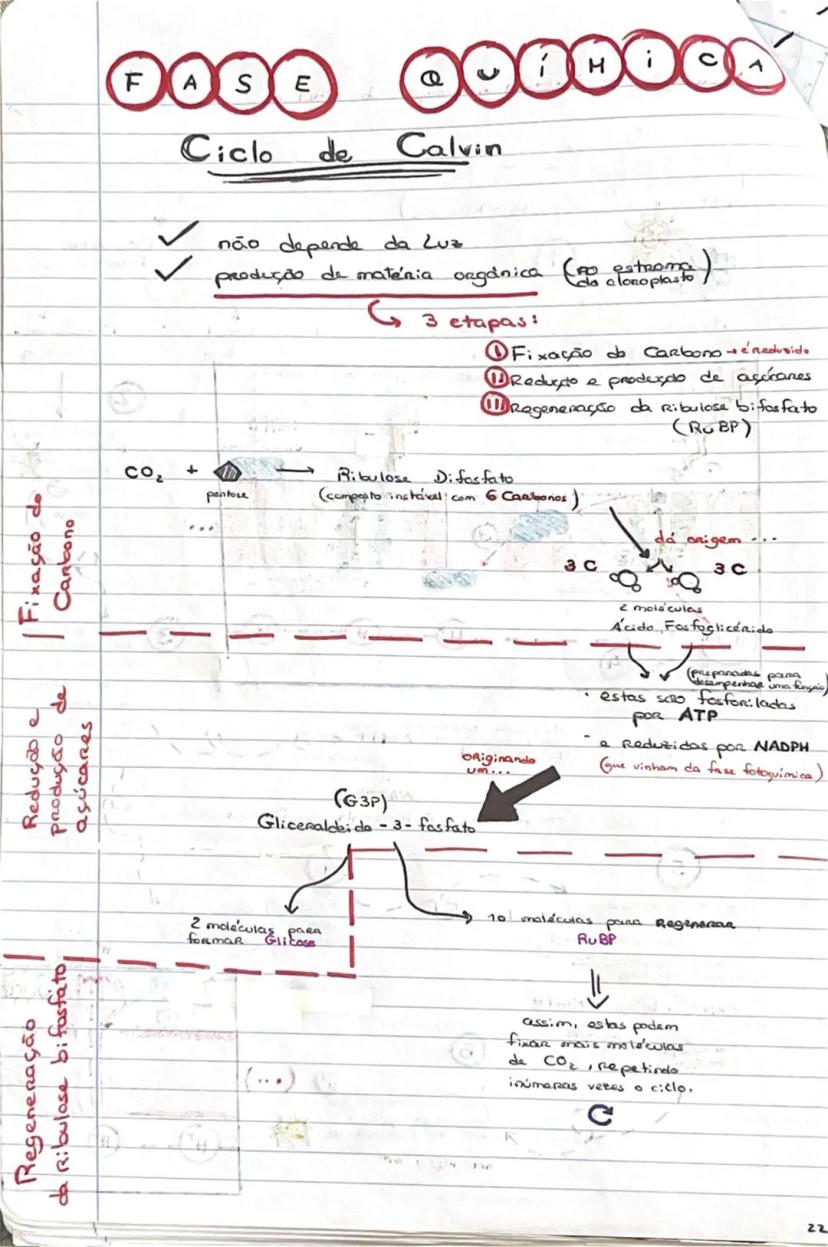 FASE QUÍMICA
Ciclo de Calvin
não depende da Luz
produção de matéria orgânica (no estroma
do cloroplasto)
3 etapas:
I Fixação do Carbono → é reduzido
II Redução e produção de açúcares
III Regeneração da ribulose bifosfato
(RuBP)
CO₂ + → Ribulose Difosfato
pentose
(composto instável com 6 Carbonos)
...
dá origem ...
3C 3C
2 moléculas
Ácido Fosfoglicérido
Fixação do
Carbono
(preparadas para
desempenhar uma função)
· estas são fosforiladas
por ATP
- e reduzidas por NADPH
(que vinham da fase fotoquímica)
originando
um...
(G3P)
Gliceraldeído - 3 - fosfato
Redução e
produção de
açúcares
2 moléculas para
formar Glicose
10 moléculas para Regenerar
RuBP
assim, estas podem
fixar mais moléculas
de CO₂, repetindo
inúmeras vezes o ciclo.
(...)
Regeneração
da ribulose bifosfato
22